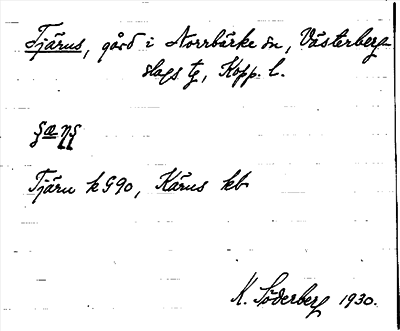 Tjärus, gård i Norrbärke sn, Västerberg-
slags tg, Kopp. l.
Tjäru k G90, Kärus kb
K. Söderberg 1930.